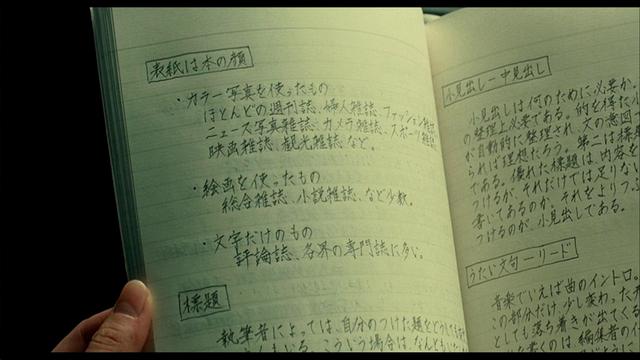 表紙は本の顔
・カラー写真を使ったもの
ほとんどの週刊誌、婦人雑誌、ファッション雑誌
ニュース写真雑誌、カメラ雑誌、スポーツ雑誌
映画雑誌、観光雑誌など。
・絵画を使ったもの
総合雑誌、小説雑誌、など少数。
・文字だけのもの
評論誌、各界の専門誌に多い。
標題
執筆者によっては、自分のつけた題をどうしても
こういう場合は、なんとも
小見出し一中見出し
小見出しは何のために必要か。
の整理上必要である。的を得た
が自動的に整理され、文の意図
られば理想だろう。第二は標
である。優れた標題は内容を
つけるが、それだけでは足りない
書いてあるのか、それをよりフ
つけるのが、小見出しである。
うたい文句ーリード
音楽でいえば曲のイントロ。
この部分だけ少し変わった
としても落ち着きが出てくる
くのは編集者の